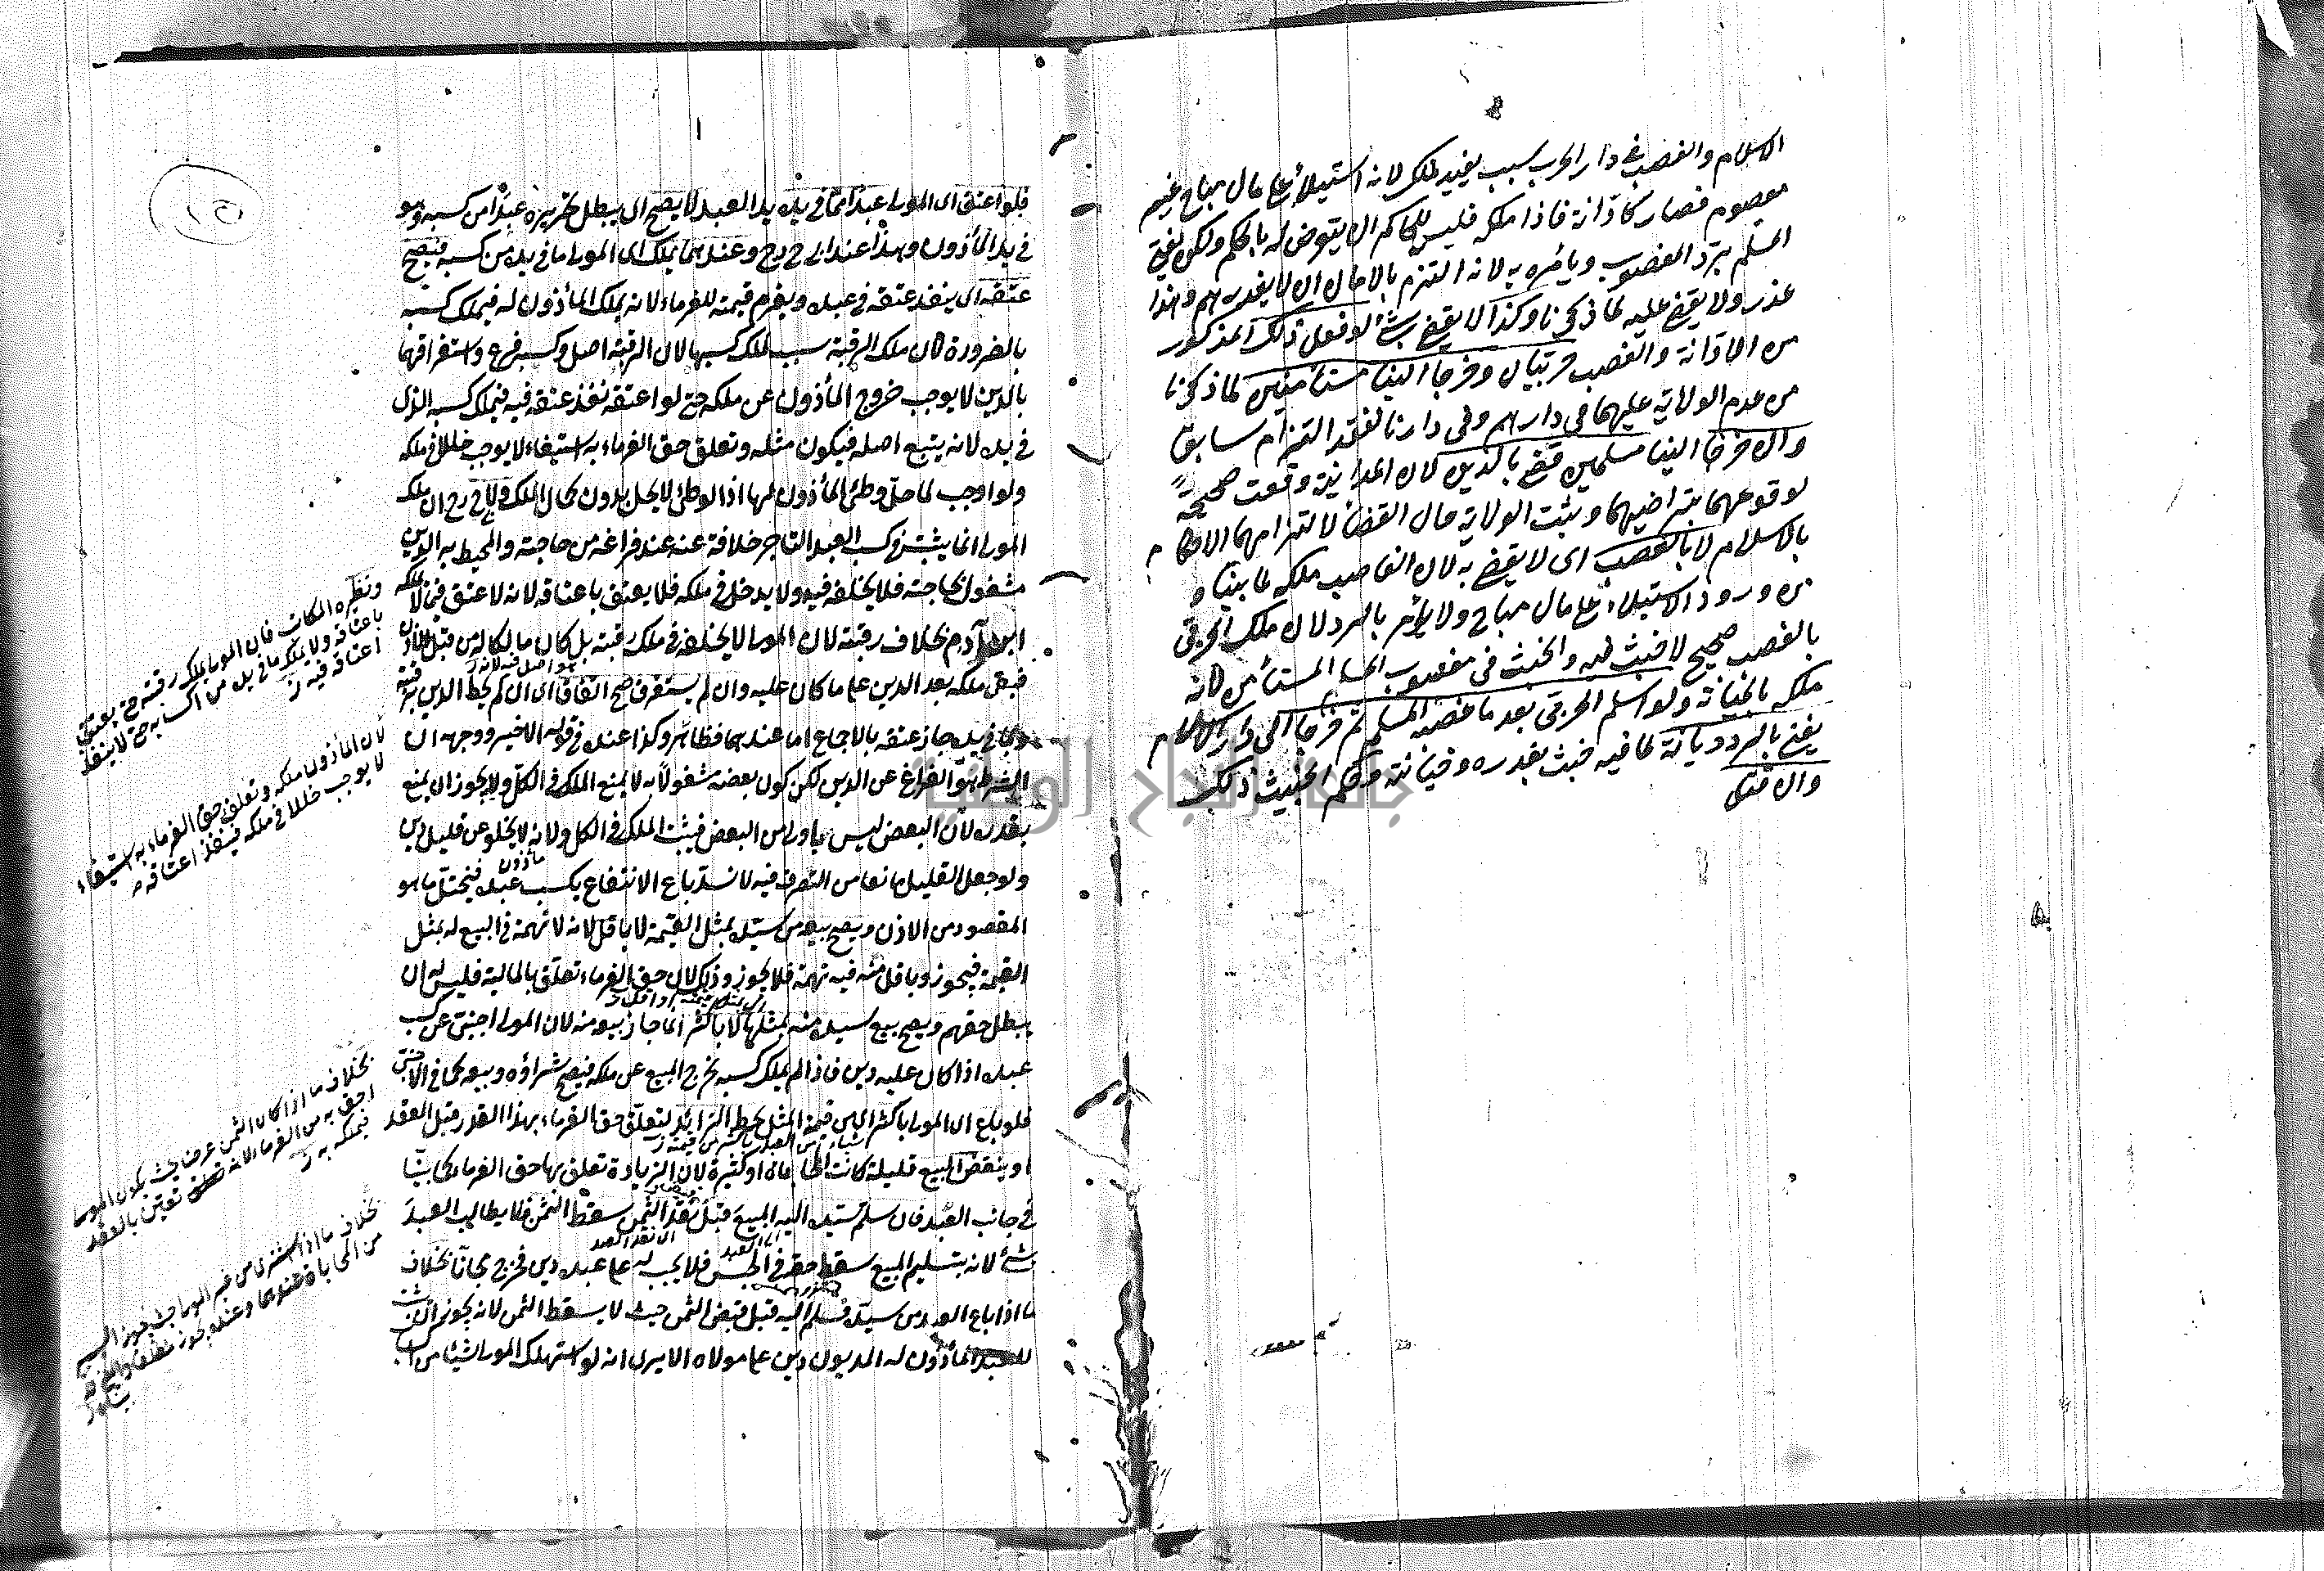 الاسلام والغصب في دار الحرب سبب يفيد الملك لانه استيلاء على مال مباح غير
معصوم فصار كالادانة فاذا ملكه فليس للحاكم ان يتعرض له بالحكم ولكن يفتى
المسلم برد المغصوب ويأمره به لانه التزم بالامان ان لا يغدر بهم وهذا
غدر ولا يقضى عليه لما ذكرنا وكذا لا يقضى بشئ لو فعل ذلك المذكور
من الادانة والغصب حربيان وخرجا الينا مستأمنين لما ذكرنا
من عدم الولاية عليهما في دارهم وفي دارنا لفقد التزام سابق
وان خرجا الينا مسلمين قضى بالدين لان المداينة وقعت صحيحة
لوقوعهما بتراضيهما ويثبت الولاية حال القضاء لالتزامهما الاحكام
بالاسلام لا بالغصب اى لا يقضى به لان الغاصب ملكه لما بينا و
من ورود الاستيلاء على مال مباح ولا يؤمر بالرد لان ملك الحربي
بالغصب صحيح لا خبث فيه والخبث في مغصوب المسلم المستأمن لانه
ملكه بالخيانة ولو اسلم الحربي بعد ما غصبه المسلم ثم خرجا الى دار الاسلام
يفتى بالرد ديانة لما فيه خبث بغدره وخيانته وحكم الخبيث ذلك
وان قتل
فلو اعتق اى المولى عبدا مما في يده يد العبد لا يصح اى يبطل تحريره عبدا من كسبه وهو
في يد المأذون وهذا عند ابي ح رح وعندهما يملك اى المولى ما في يده من كسبه فيصح
عتقه اى ينفذ عتقه في عبده ويغرم قيمته للغرماء لانه يملك المأذون له فيملك كسبه
بالضرورة لان ملك الرقبة سبب لملك كسبها لان الرقبة اصل وكسبه فرع واستغراقهما
بالدين لا يوجب خروج المأذون عن ملكه حتى لو اعتقه نفذ عتقه فيه فيملك كسبه الذى
في يده لانه يتبع اصله فيكون مثله وتعلق حق الغرماء به استيفاء لا يوجب خللا في ملكه
ولو اوجب لما حل وطئ المأذون لها اذ الوطئ لا يحل بدون كمال الملك ولابي ح رح ان ملك
المولى انما يثبت في كسب العبد التاجر خلافة عنه عند فراغه من حاجته والمحيط به الدين
مشغول بحاجته فلا يخلفه فيه ولا يدخل في ملكه فلا يعتق باعتاقه لانه لا عتق فيما لا يملكه
ابن آدم بخلاف رقبته لان المولى لا يخلفه في ملك رقبته بل كان مالكا له من قبل الاذن
فبقى ملكه بعد الدين على ما كان عليه وان لم يستغرق صح اتفاقا اى ان لم يحط الدين برقبته
وبما في يده جاز عتقه بالاجماع اما عندهما فظاهر وكذا عنده في قوله الاخير ووجهه ان
الشرط هو الفراغ عن الدين لكن كون بعضه مشغولا به لا يمنع الملك في الكل ولا يجوز ان يمنع
بقدره لان البعض ليس باولى من البعض فيثبت الملك في الكل ولانه لا يخلو عن قليل دين
ولو جعل القليل مانعا من التصرف فيه لانسد باع الانتفاع بكسب عبده مأذون فيختل ما هو
المقصود من الاذن ويصح بيعه من سيده بمثل القيمة لا باقل لانه لا تهمة في البيع له بمثل
القيمة فيجوز وباقل منه فيه تهمة فلا يجوز وذلك لان حق الغرماء تعلق بالمالية فليس له ان
يبطل حقهم ويصح بيع سيده منه بمثلها لا باكثر انما جاز بيعه منه لان المولى اجنبي عن كسب
عبده اذا كان عليه دين فاذا لم يملك كسبه يخرج المبيع عن ملكه فيصح شراؤه وبيعه كما في الاجنبي
فلو باع اى المولى باكثر اى من قيمة المثل يحط الزائد لتعلق حق الغرماء بهذا القدر قبل العقد
او ينقض البيع قليلة كانت المحاباة او كثيرة لان الزيادة تعلق بها حق الغرماء كما بينا
في جانب العبد فان سلم سيده اليه المبيع قبل نقد الثمن سقط الثمن فلا يطالب العبد
بشئ لانه بتسليم المبيع سقط حقه في الحبس فلا يجب له على عبده دين فخرج مجانا بخلاف
ما اذا باع العبد من سيده فسلم اليه قبل قبض الثمن حيث لا يسقط الثمن لانه يجوز ان يثبت
للعبد المأذون له المديون دين على مولاه الا يرى انه لو استهلك المولى شيئا من
ونظيره المكاتب فان المولى يملك رقبته حتى يعتق
باعتاقه ولا يملك ما في يده من اكسابه حتى لا ينفذ
اعتاقه فيه
لان المأذون ملكه وتعلق حق الغرماء به استيفاء
لا يوجب خللا في ملكه فينفذ اعتاقه
بخلاف ما اذا كان الثمن عرضا حيث يكون المولى
احق به من الغرماء لانه تعين بالعقد
فيملكه به
بخلاف ما اذا اشترى من غير المولى حيث يجوز
من المحاباة عندهما وعنده يجوز مطلقا